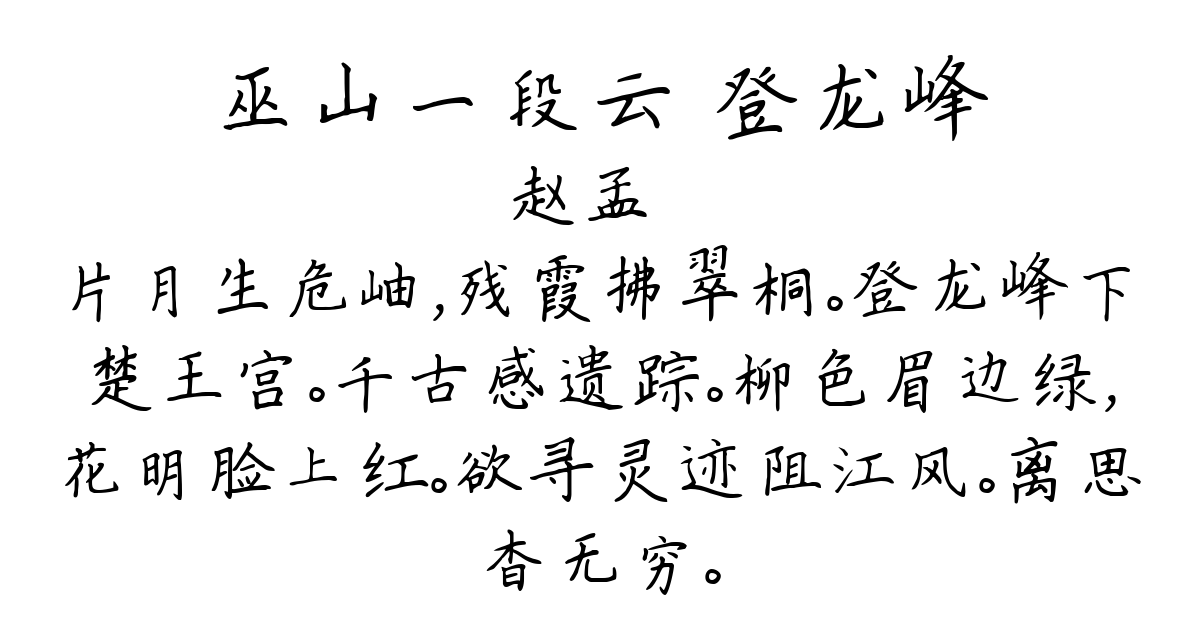 巫山一段云 登龙峰
赵孟
片月生危岫,残霞拂翠桐。登龙峰下
楚王宫。千古感遗踪。柳色眉边绿,
花明脸上红。欲寻灵迹阻江风。离思
杳无穷。